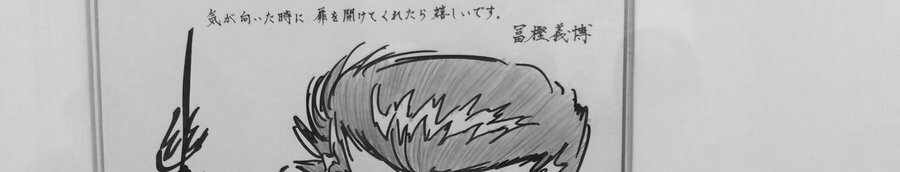 気が向いた時に 扉を開けてくれたら 嬉しいです。
冨樫義博